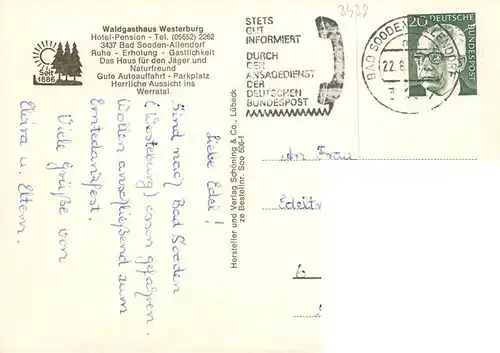 Waldgasthaus Westerburg
Hotel-Pension - Tel. (05652) 2262
3437 Bad Sooden-Allendorf
Ruhe - Erholung - Gastlichkeit
Das Haus für den Jäger und
Naturfreund
Gute Autoauffahrt - Parkplatz
Herrliche Aussicht ins
Werratal
Seit
1886
Liebe Edel!
Sind nach Bad Sooden
(Westerburg) essen gefahren.
Wollen anschließend zum
Erntedankfest.
Viele Grüße von
Elvira u. Eltern.
Hersteller und Verlag Schöning & Co., Lübeck
ze Bestellnr. Soo 606-f
STETS
GUT
INFORMIERT
DURCH
DEN
ANSAGEDIENST
DER
DEUTSCHEN
BUNDESPOST
BAD SOODEN-ALLENDORF
22.8
20
DEUTSCHE
BUNDESPOST
An Frau